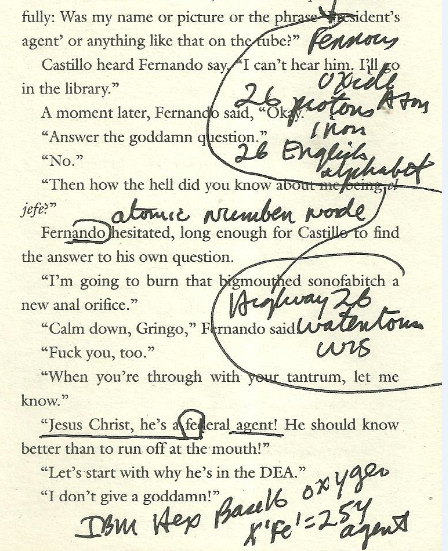 fully: Was my name or picture or the phrase 'president's
agent' or anything like that on the tube?"
Ferrous
Castillo heard Fernando say, "I can't hear him. I'll go
oxide
in the library."
26 protons Atom
A moment later, Fernando said, "Okay."
Iron
"Answer the goddamn question."
26 English
"No."
alphabet
"Then how the hell did you know about me being el
jefe?"
atomic number node
Fernando hesitated, long enough for Castillo to find
the answer to his own question.
"I'm going to burn that bigmouthed sonofabitch a
new anal orifice."
Highway 26
"Calm down, Gringo," Fernando said.
Watertown
"Fuck you, too."
WIS
"When you're through with your tantrum, let me
know."
"Jesus Christ, he's a federal agent! He should know
better than to run off at the mouth!"
"Let's start with why he's in the DEA."
oxygen
"I don't give a goddamn!"
IBM Hex Base16
X'Fe'=254
agent